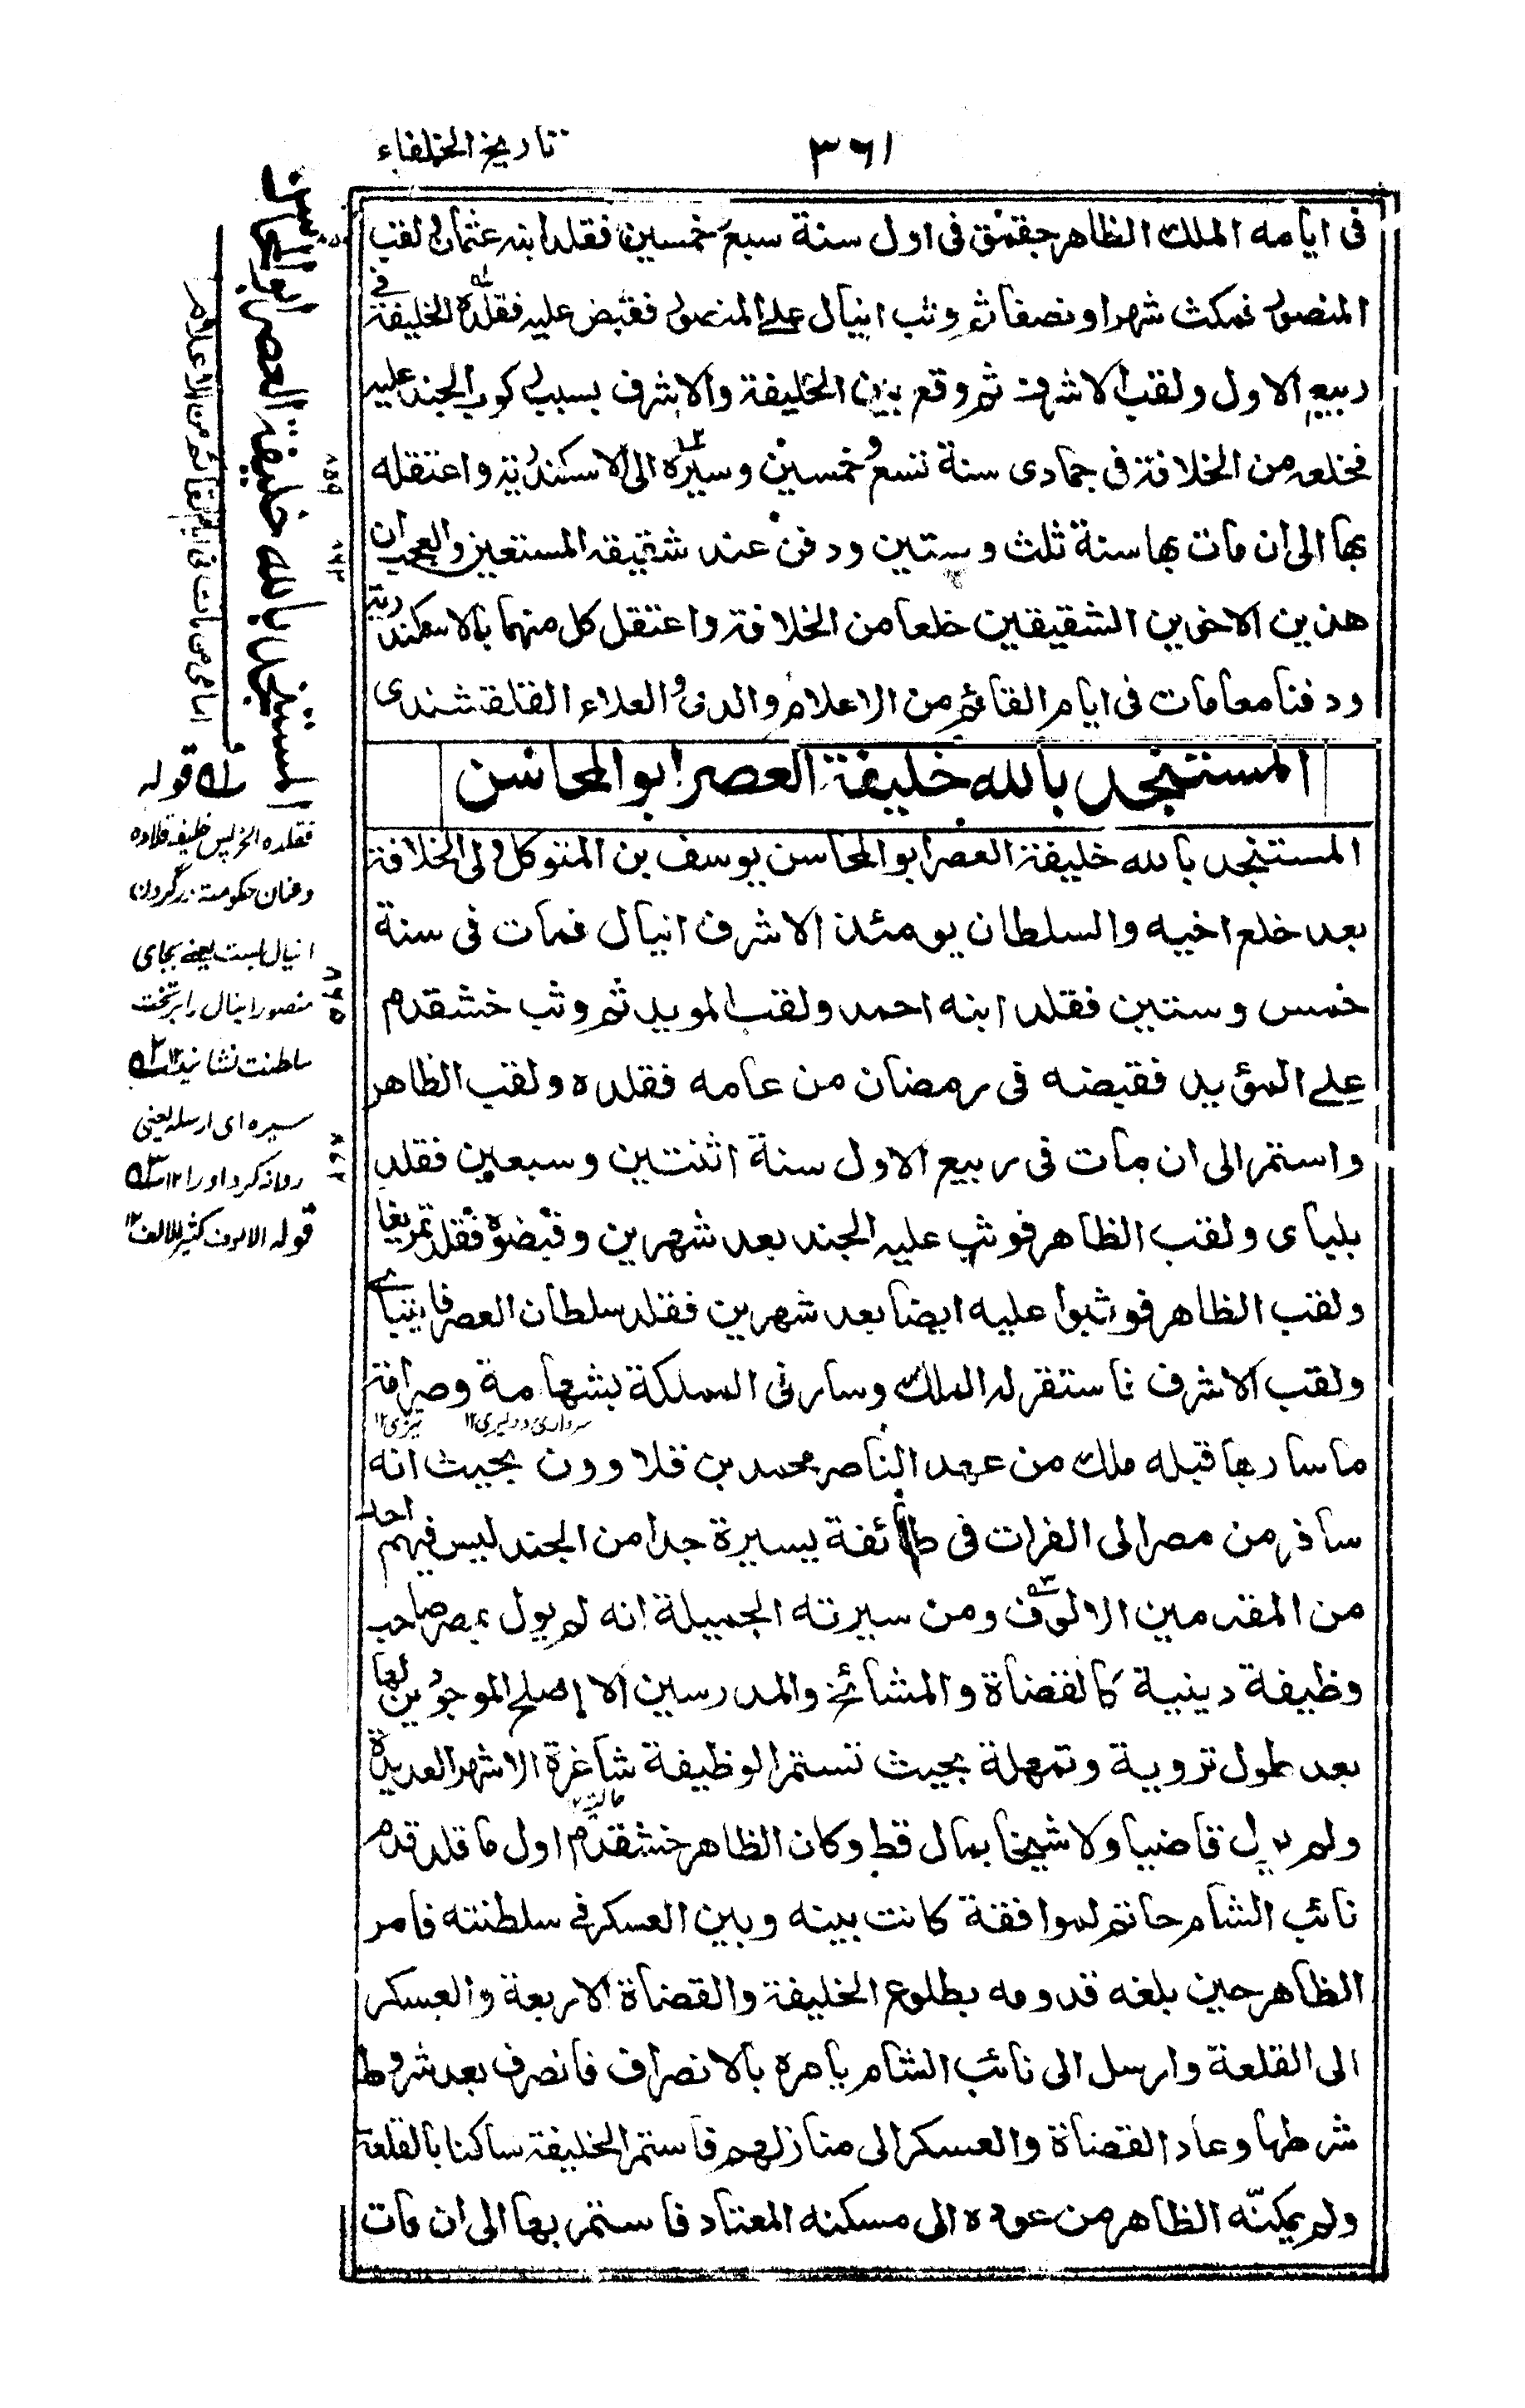 ٣٦١
تاريخ الخلفاء
فى ايامه الملك الظاهر جقمق فى اول سنة سبع و خمسين فقلد ابنه عثمان و لقب
المنصور فمكث شهرا و نصفا ثم وثب اينال على المنصور فقبض عليه فقلده الخليفة فى
ربيع الاول ولقب الاشرف ثم وقع بين الخليفة والاشرف بسبب ركوب الجند عليه
فخلعه من الخلافة فى جمادى سنة تسع و خمسين و سيره الى الاسكندرية و اعتقله
بها الى ان مات بها سنة ثلث و ستين و دفن عند شقيقه المستعين والعجب ان
هذين الاخوين الشقيقين خلعا من الخلافة و اعتقل كل منهما بالاسكندرية
ودفنا معا مات فى ايام القائم من الاعلام والدى و العلاء القلقشندى
المستنجد بالله خليفة العصر ابو المحاسن
المستنجد بالله خليفة العصر ابو المحاسن يوسف بن المتوكل ولى الخلافة
بعد خلع اخيه والسلطان يومئذ الاشرف انيال فمات فى سنة
خمس وستين فقلد ابنه احمد ولقب المويد ثم وثب خشقدم
على المؤيد فقبضه فى رمضان من عامه فقلده ولقب الظاهر
واستمر الى ان مات فى ربيع الاول سنة اثنتين وسبعين فقلد
بلياى ولقب الظاهر فوثب عليه الجند بعد شهرين وقبضوه فقلد تمربغا
ولقب الظاهر فوثبوا عليه ايضا بعد شهرين فقلد سلطان العصر قايتباى
ولقب الاشرف فاستقر له الملك وسار فى المملكة بشهامة وصرامة
سردارى و دليرى١٢ تيزى١٢
ما سار بها قبله ملك من عهد الناصر محمد بن قلاوون بحيث انه
سافر من مصر الى الفرات فى طائفة يسيرة جدا من الجند ليس فيهم احد
من المقدمين الالوف ومن سيرته الجميلة انه لم يول بمصر صاحب
وظيفة دينية كالقضاة والمشائخ والمدرسين الا اصلح الموجودين لها
بعد طول تروية وتمهلة بحيث تستمر الوظيفة شاغرة الاشهر العديدة
ولم يول قاضيا ولا شيخا بمال قط وكان الظاهر خشقدم اول ما قلد قدم
نائب الشام جانم لموافقة كانت بينه وبين العسكر فى سلطنته فامر
الظاهر حين بلغه قدومه بطلوع الخليفة والقضاة الاربعة والعسكر
الى القلعة وارسل الى نائب الشام يامره بالانصراف فانصرف بعد شروط
شرطها وعاد القضاة والعسكر الى منازلهم فاستمر الخليفة ساكنا بالقلعة
ولم يمكنه الظاهر من عوده الى مسكنه المعتاد فاستمر بها الى ان مات
المستنجد بالله خليفة العصر ابو المحاسن
اسامى من مات فى ايام القائم من الاعلام
٨٥٩
٨٦٣
٨٦٥
٨٧٢
قوله
فقلده الخ پس خليفه قلاده
و عنان حكومت در گردن
انيال بست يعنى بجاى
منصور اينال را بر تخت
سلطنت نشانيد١٢
سيره اى ارسله يعنى
روانه كرد او را١٢
قوله الالوف كثير الالف١٢